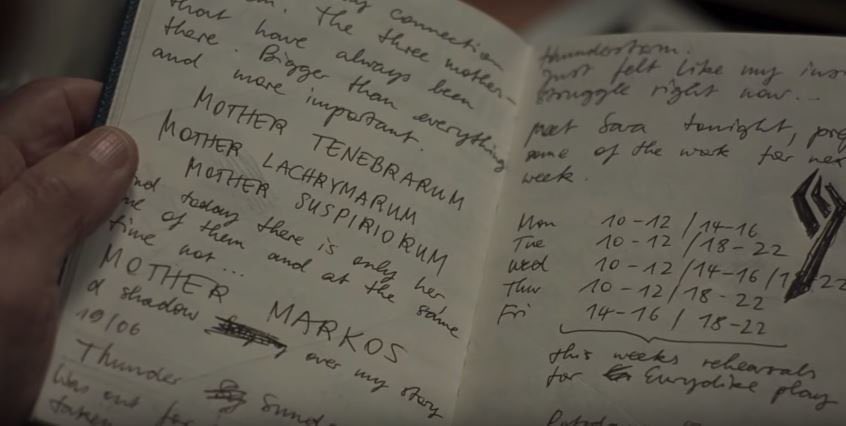 connection
The three mother-
that have always been
there. Bigger than everything
and more important.
MOTHER TENEBRARUM
MOTHER LACHRYMARUM
MOTHER SUSPIRIORUM
today there is only her
of them and at the same
time not...
MOTHER MARKOS
a shadow over my story
19/06
Thunder
Was out for
taken
thunderstorm.
Just felt like my
struggle right now...
meet Sara tonight,
some of the work for
week.
Mon 10-12 / 14-16
Tue 10-12 / 18-22
Wed 10-12 / 14-16 /
Thur 10-12 / 18-22
Fri 14-16 / 18-22
this weeks rehearsals
for Eurydike play